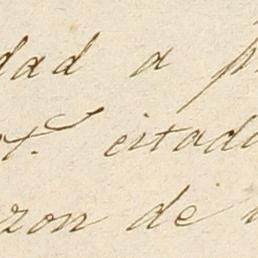 dad a p
rt. citad
zon de